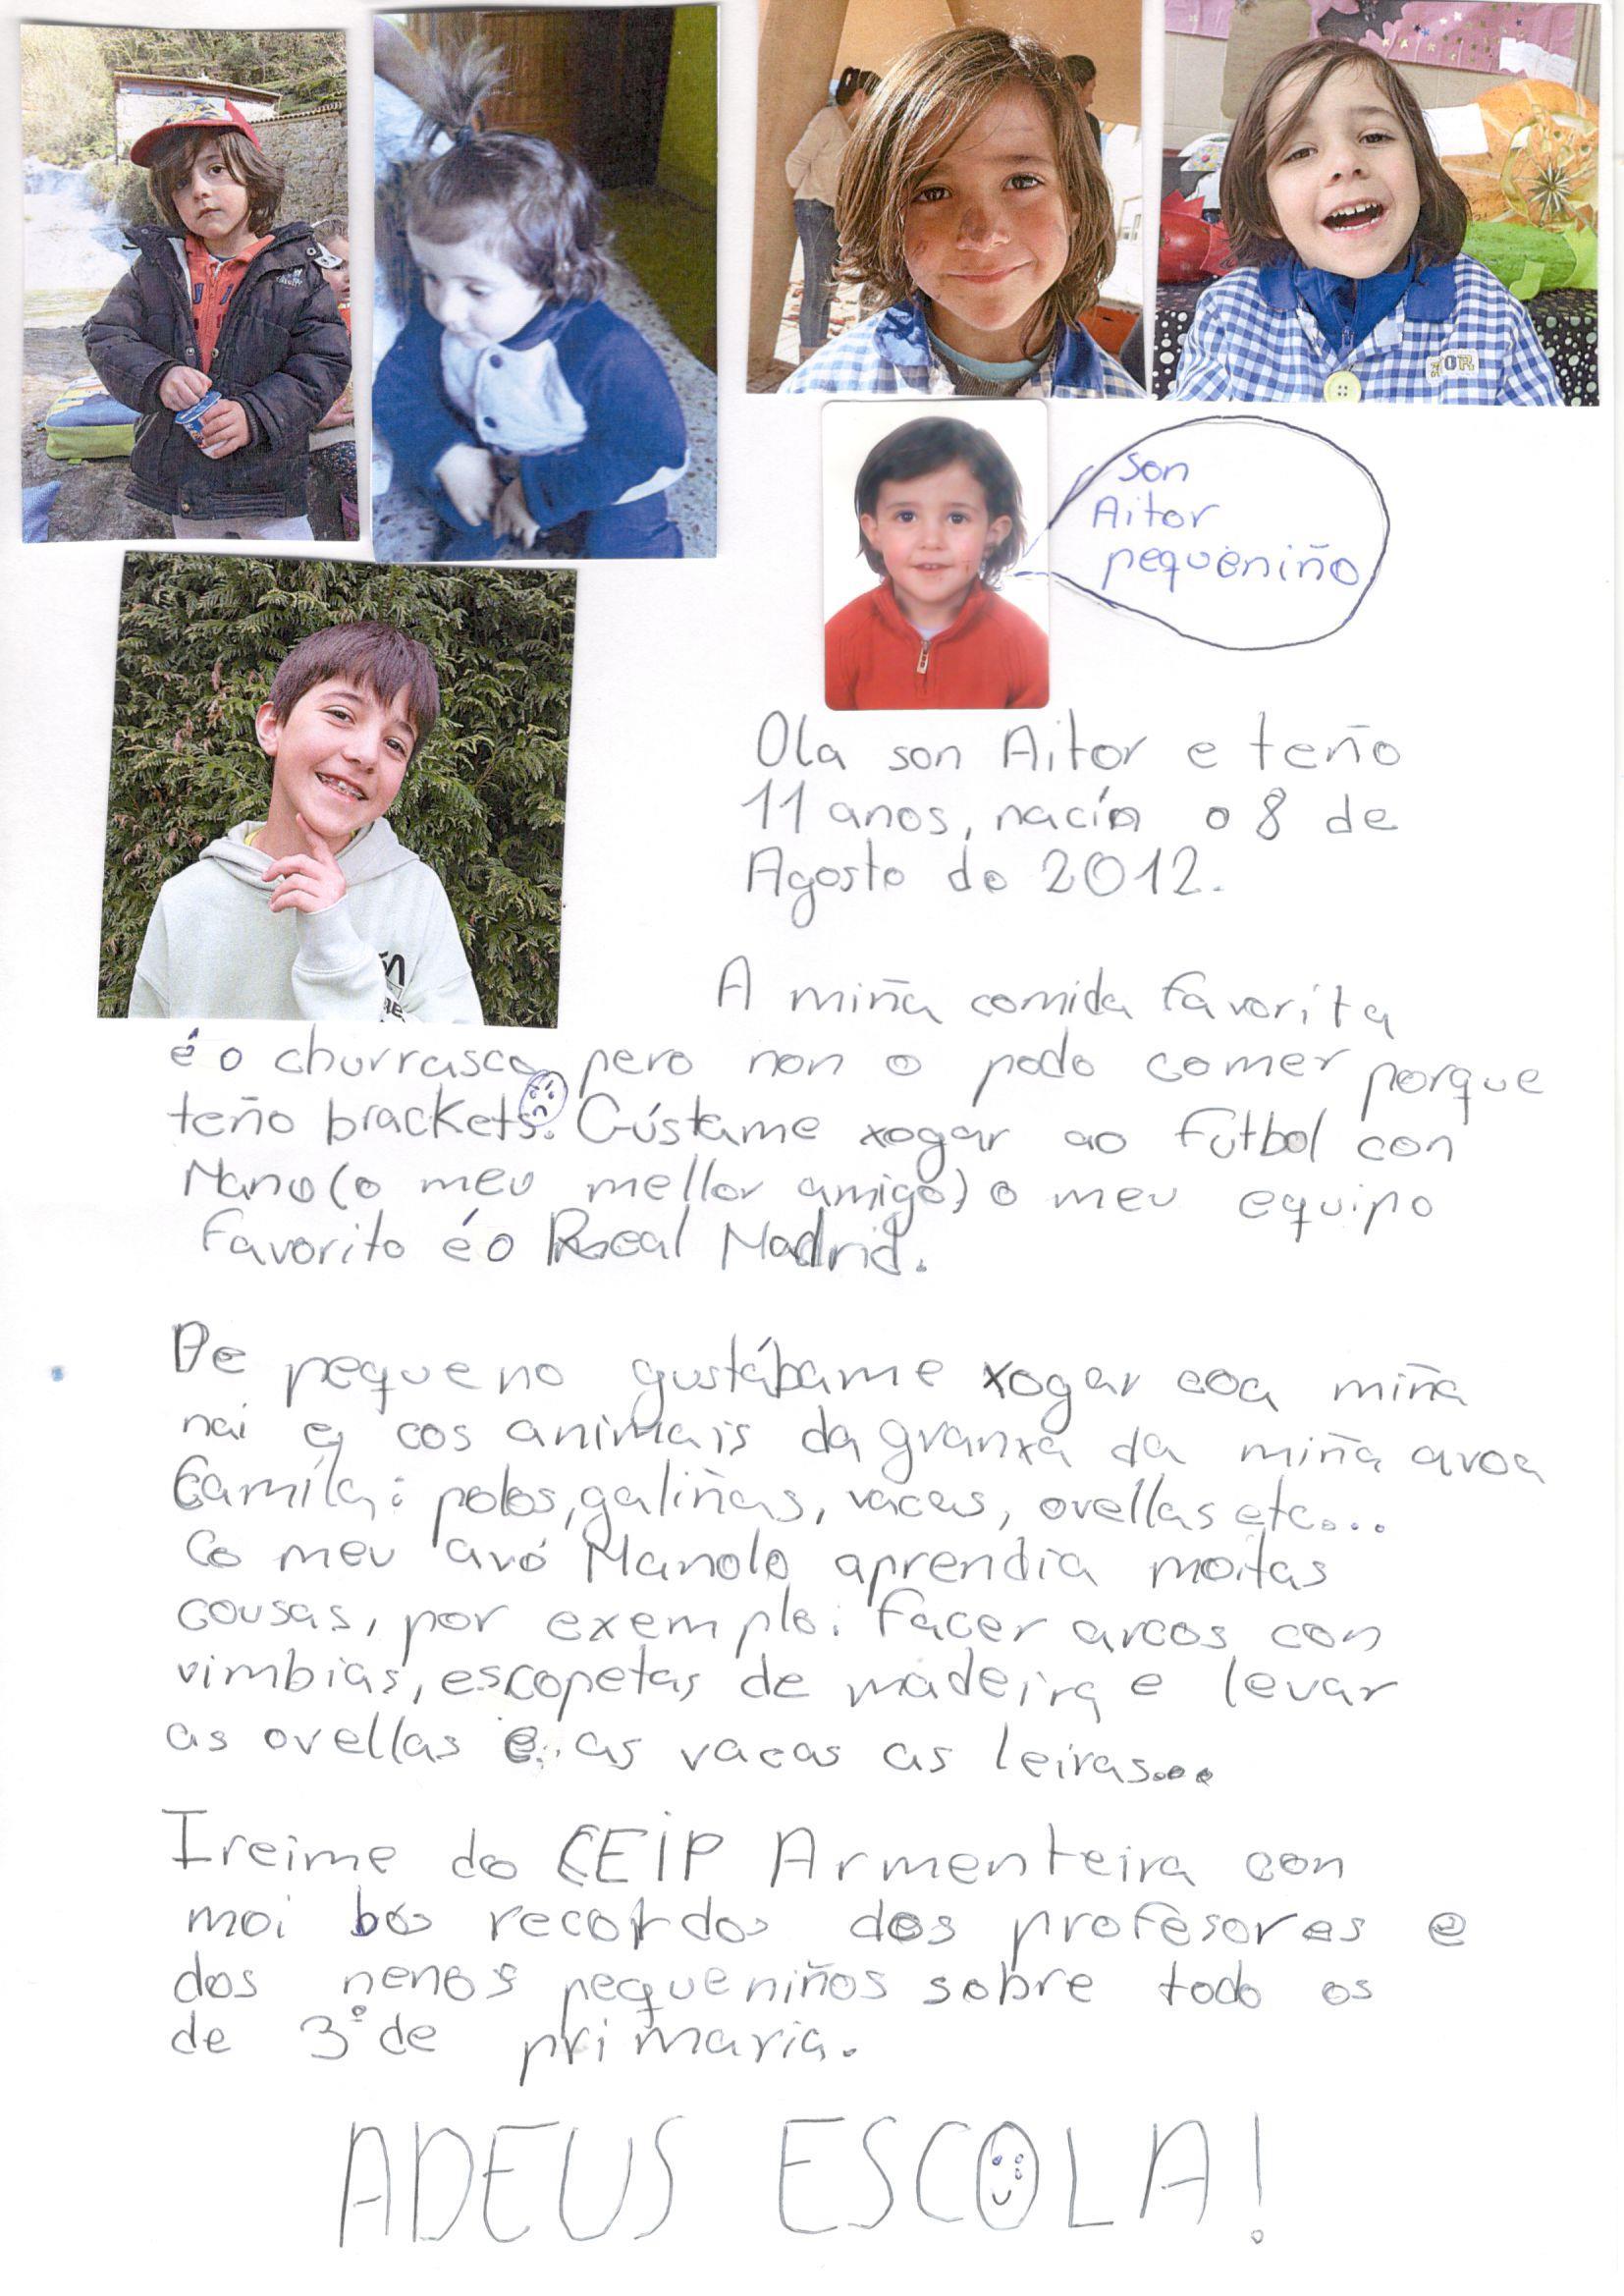 son
Aitor
pequeniño
Ola son Aitor e teño
11 anos, nacín o 8 de
Agosto de 2012.
A miña comida favorita
é o churrasco, pero non o podo comer porque
teño brackets. Gústame xogar ao fútbol con
Manu (o meu mellor amigo) o meu equipo
favorito é o Real Madrid.
De pequeno gustábame xogar coa miña
nai e cos animais da granxa da miña avoa
Camila: polos, galiñas, vacas, ovellas etc...
Co meu avó Manolo aprendia moitas
cousas, por exemplo: facer arcos con
vimbias, escopetas de madeira e levar
as ovellas e as vacas as leiras...
Ireime do CEIP Armenteira con
moi bos recordos dos profesores e
dos nenos pequeniños sobre todo os
de 3º de primaria.
ADEUS ESCOLA!